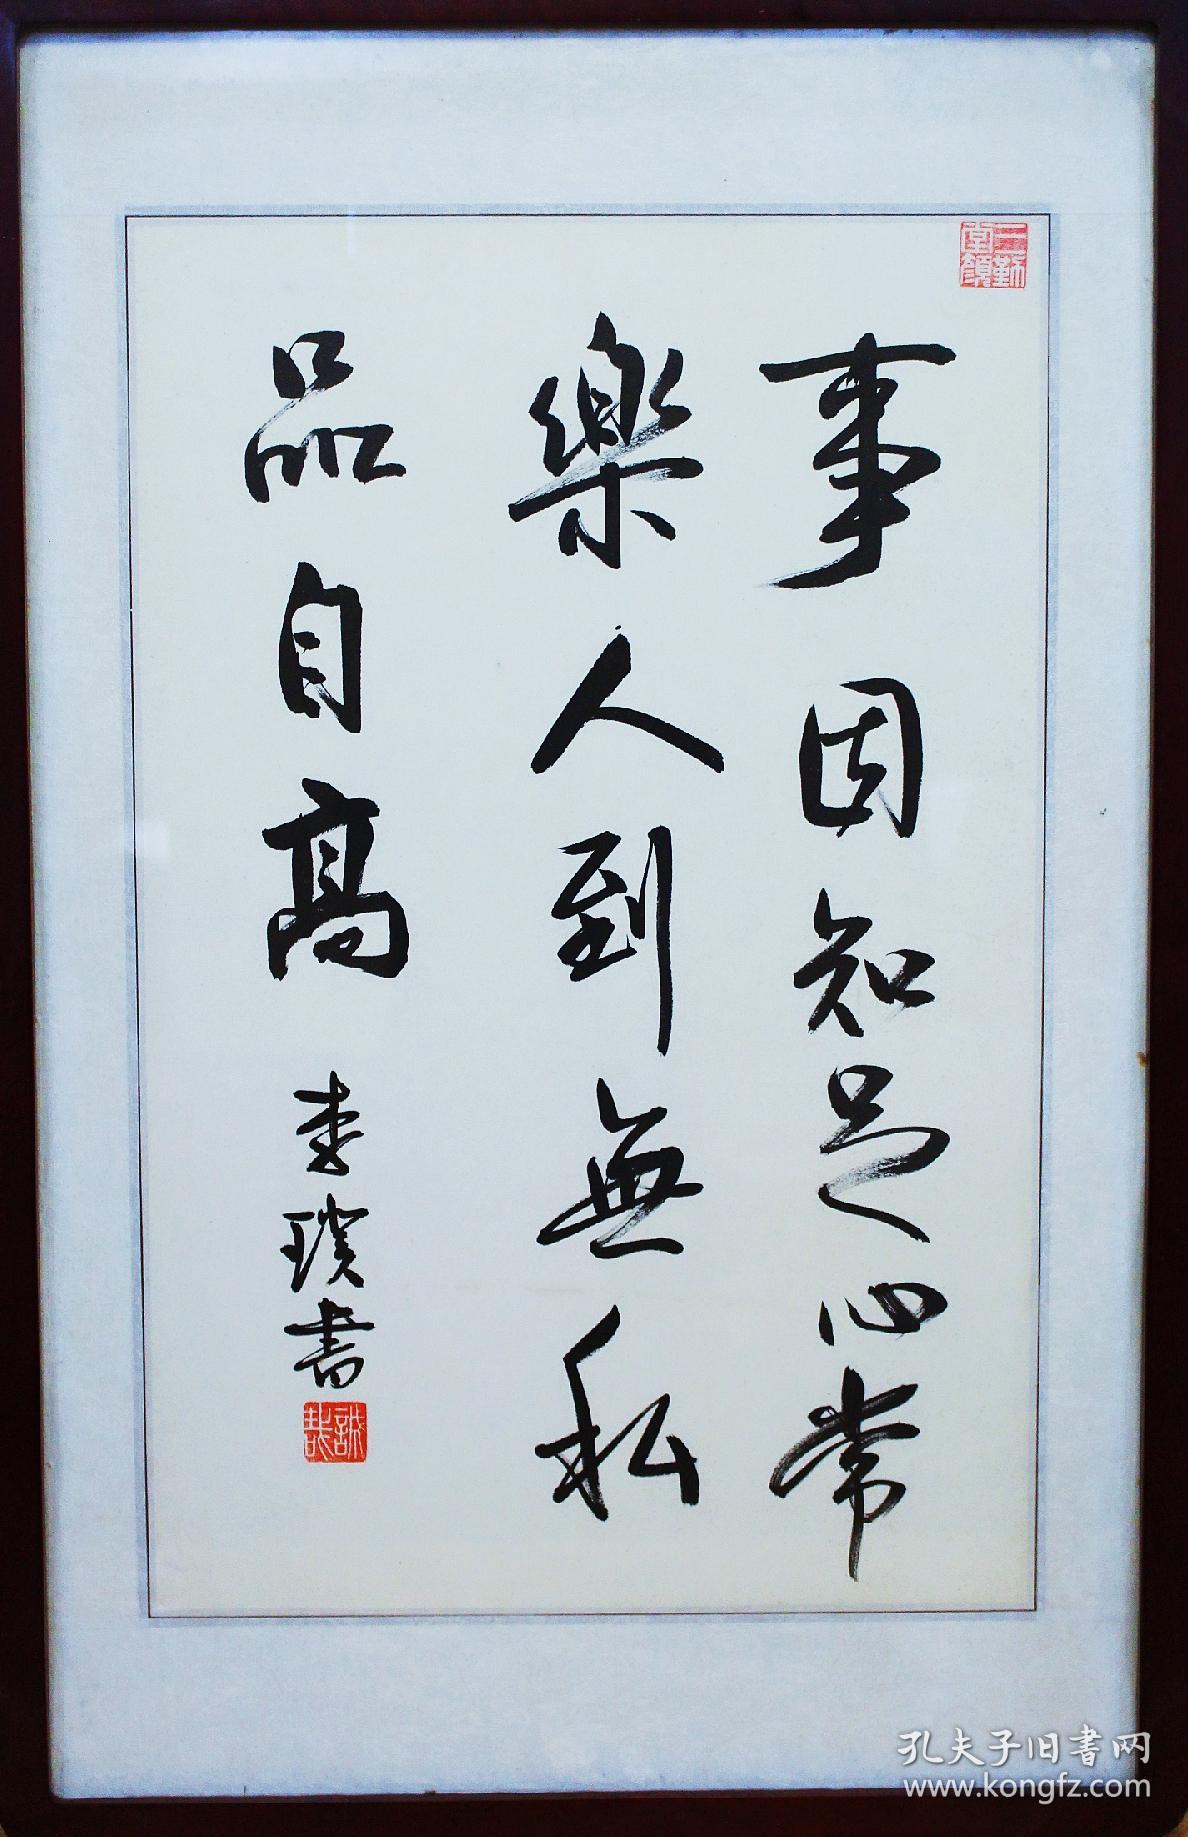 事因知足心常
樂人到無私
品自高
李璞書
孔夫子旧書网
www.kongfz.com